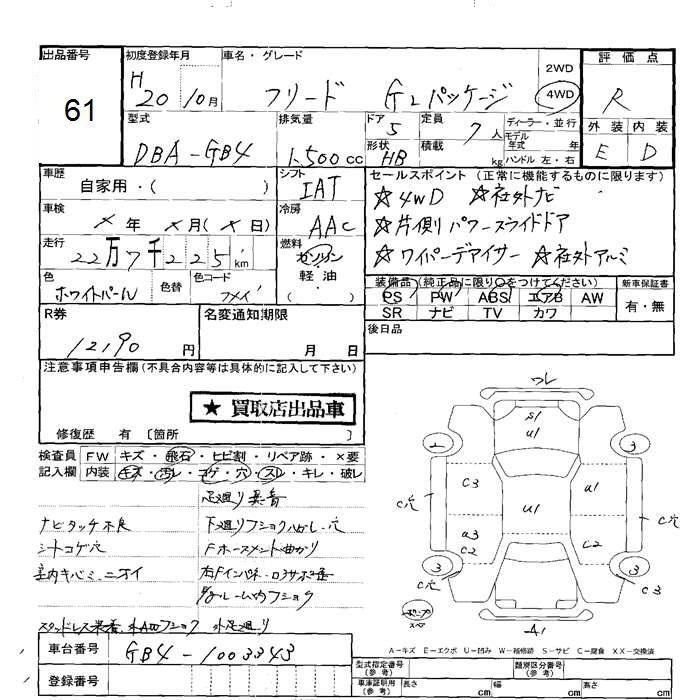 出品番号
61
初度登録年月
H 20 10月
車名・グレード
フリード G Lパッケージ
2WD
4WD
評価点
R
外装 内装
E D
型式
DBA-GB4
排気量
1,500cc
ドア 5
形状 HB
定員 7人
積載 kg
ディーラー・並行
モデル年式 年
ハンドル 左・右
車歴
自家用・( )
シフト
IAT
セールスポイント (正常に機能するものに限ります)
☆4WD ☆社外ナビ
☆片側パワースライドドア
☆ワイパーデアイサー ☆社外アルミ
車検
×年 ×月(×日)
冷房
AAC
走行
22万7千225km
燃料
ガソリン
軽・油
( )
色
ホワイトパール
色替
色コード
装備品 (純正品に限り○をつけてください)
PS PW ABS エアB AW
SR ナビ TV カワ
新車保証書
有・無
後日品
R券
12190円
名変通知期限
月 日
注意事項申告欄(不具合内容等は具体的に記入して下さい)
★ 買取店出品車
修復歴 有 〔箇所 〕
検査員記入欄
FW キズ・飛石・ヒビ割・リペア跡・×要
内装 キズ・汚レ・コゲ・穴・スレ・キレ・破レ
足廻り異音
ナビタッチ不良
下廻りフショクハガレ・穴
シートコゲ穴
Fホースメント曲がり
室内キバミ・ニオイ
車台番号
GB4-1003343
登録番号
ワレ
S1
U1
2
3
C3
U1
U1
C穴
C穴
a3
C2
C2
3
3
C穴
C3
A1
A-キズ E-エクボ U-凹み W-補修跡 S-サビ C-腐食 XX-交換済
型式指定番号(参考)
類別区分番号(参考)
車庫証明用(参考)
長さ cm
幅 cm
高さ cm